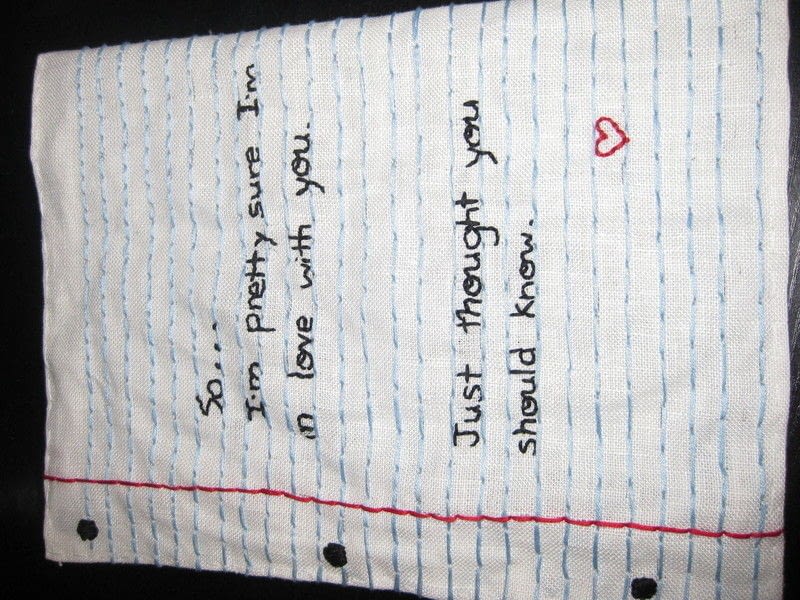 So...
I'm pretty sure I'm
in love with you.
Just thought you
should know.